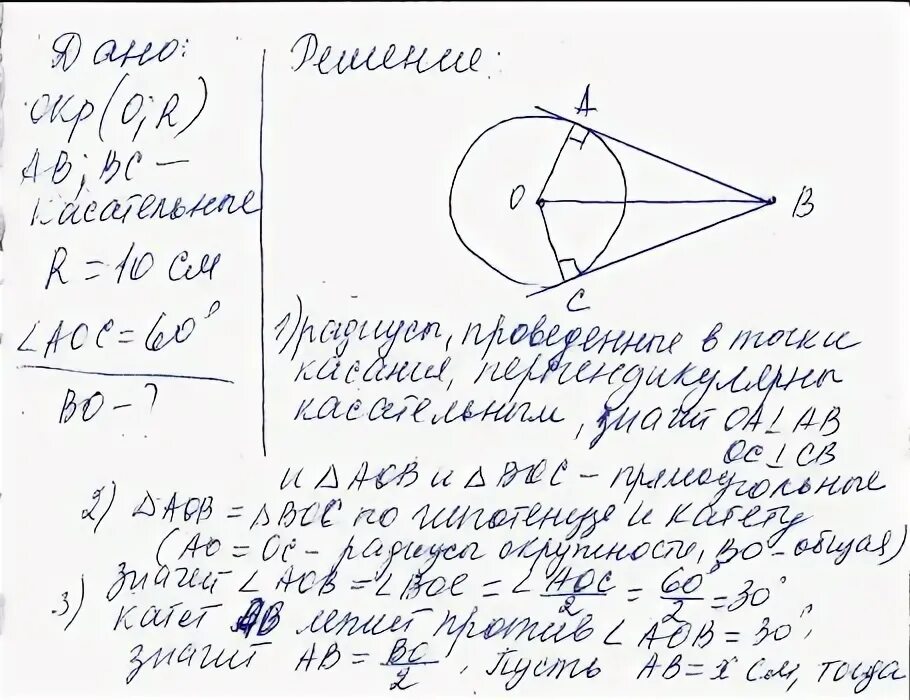 Дано:
Окр (O; R)
AB; BC —
касательные
R = 10 см
∠AOC = 60°
BO - ?
Решение:
A
O
B
C
1) радиусы, проведенные в точки
касания, перпендикулярны
касательным, значит OA ⊥ AB
OC ⊥ CB
и △AOB и △BOC - прямоугольные
2) △AOB = △BOC по гипотенузе и катету
(AO = OC - радиусы окружности, BO - общая)
значит ∠AOB = ∠BOC = ∠AOC/2 = 60°/2 = 30°
3) катет AB лежит против ∠AOB = 30°,
значит AB = BO/2. Пусть AB = x см, тогда